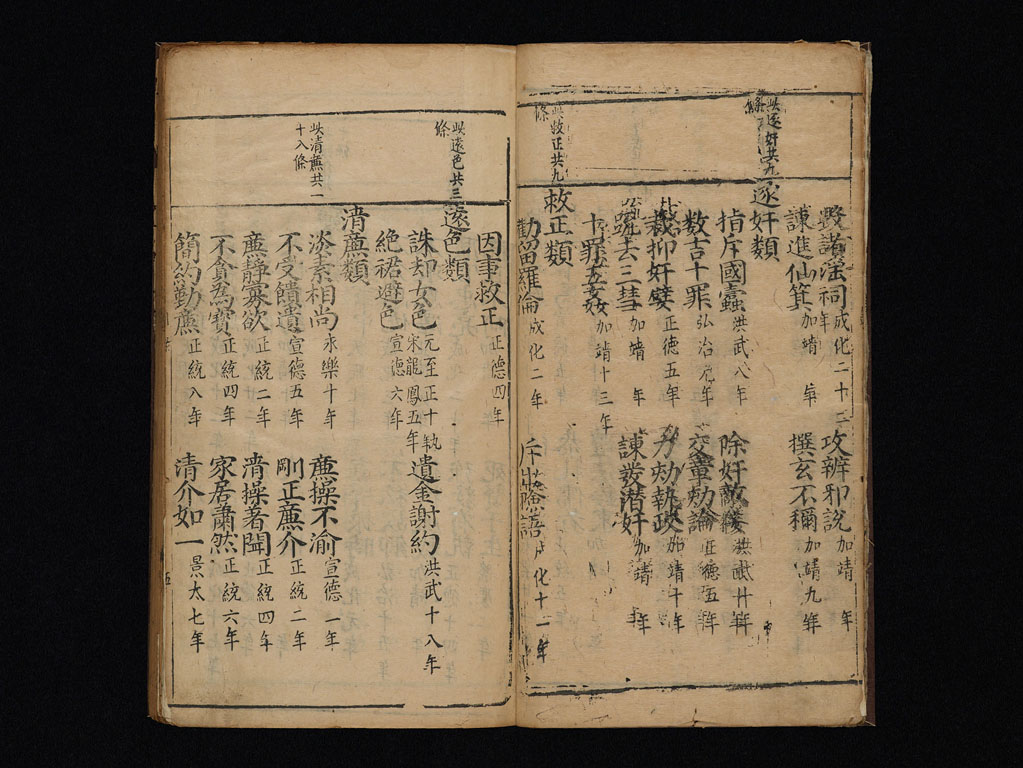 此逐奸共九條
毀諸淫祠 成化二十二年 攻辨邪說 加靖 年
諫進仙箕 加靖 年 撰玄不稱 加靖九年
逐奸類
指斥國蠹 洪武八年 除奸敵 洪武廿年
数吉十罪 弘治元年 交章劾論 正德五年
裁抑奸嬖 正德五年 力劾執政 加靖十年
疏去三彗 加靖 年 諫發潛奸 加靖 年
十罪五奸 加靖十三年
此救正共九條
救正類
勸留羅倫 成化二年 斥 語 成化十一年
因事救正 正德四年
此遠色共三條
遠色類
誅却女色 元至正十 宋龍鳳五年 遺金謝約 洪武十八年
絕裙避色 宣德六年
此清蔗共一十八條
清蔗類
淡素相尚 永樂十年 蔗操不渝 宣德一年
不受饋遺 宣德五年 剛正蔗介 正統二年
蔗靜寡欲 正統二年 清操著聞 正統四年
不貪為寶 正統四年 家居蕭然 正統六年
簡約勤蔗 正統八年 清介如一 景太七年
五